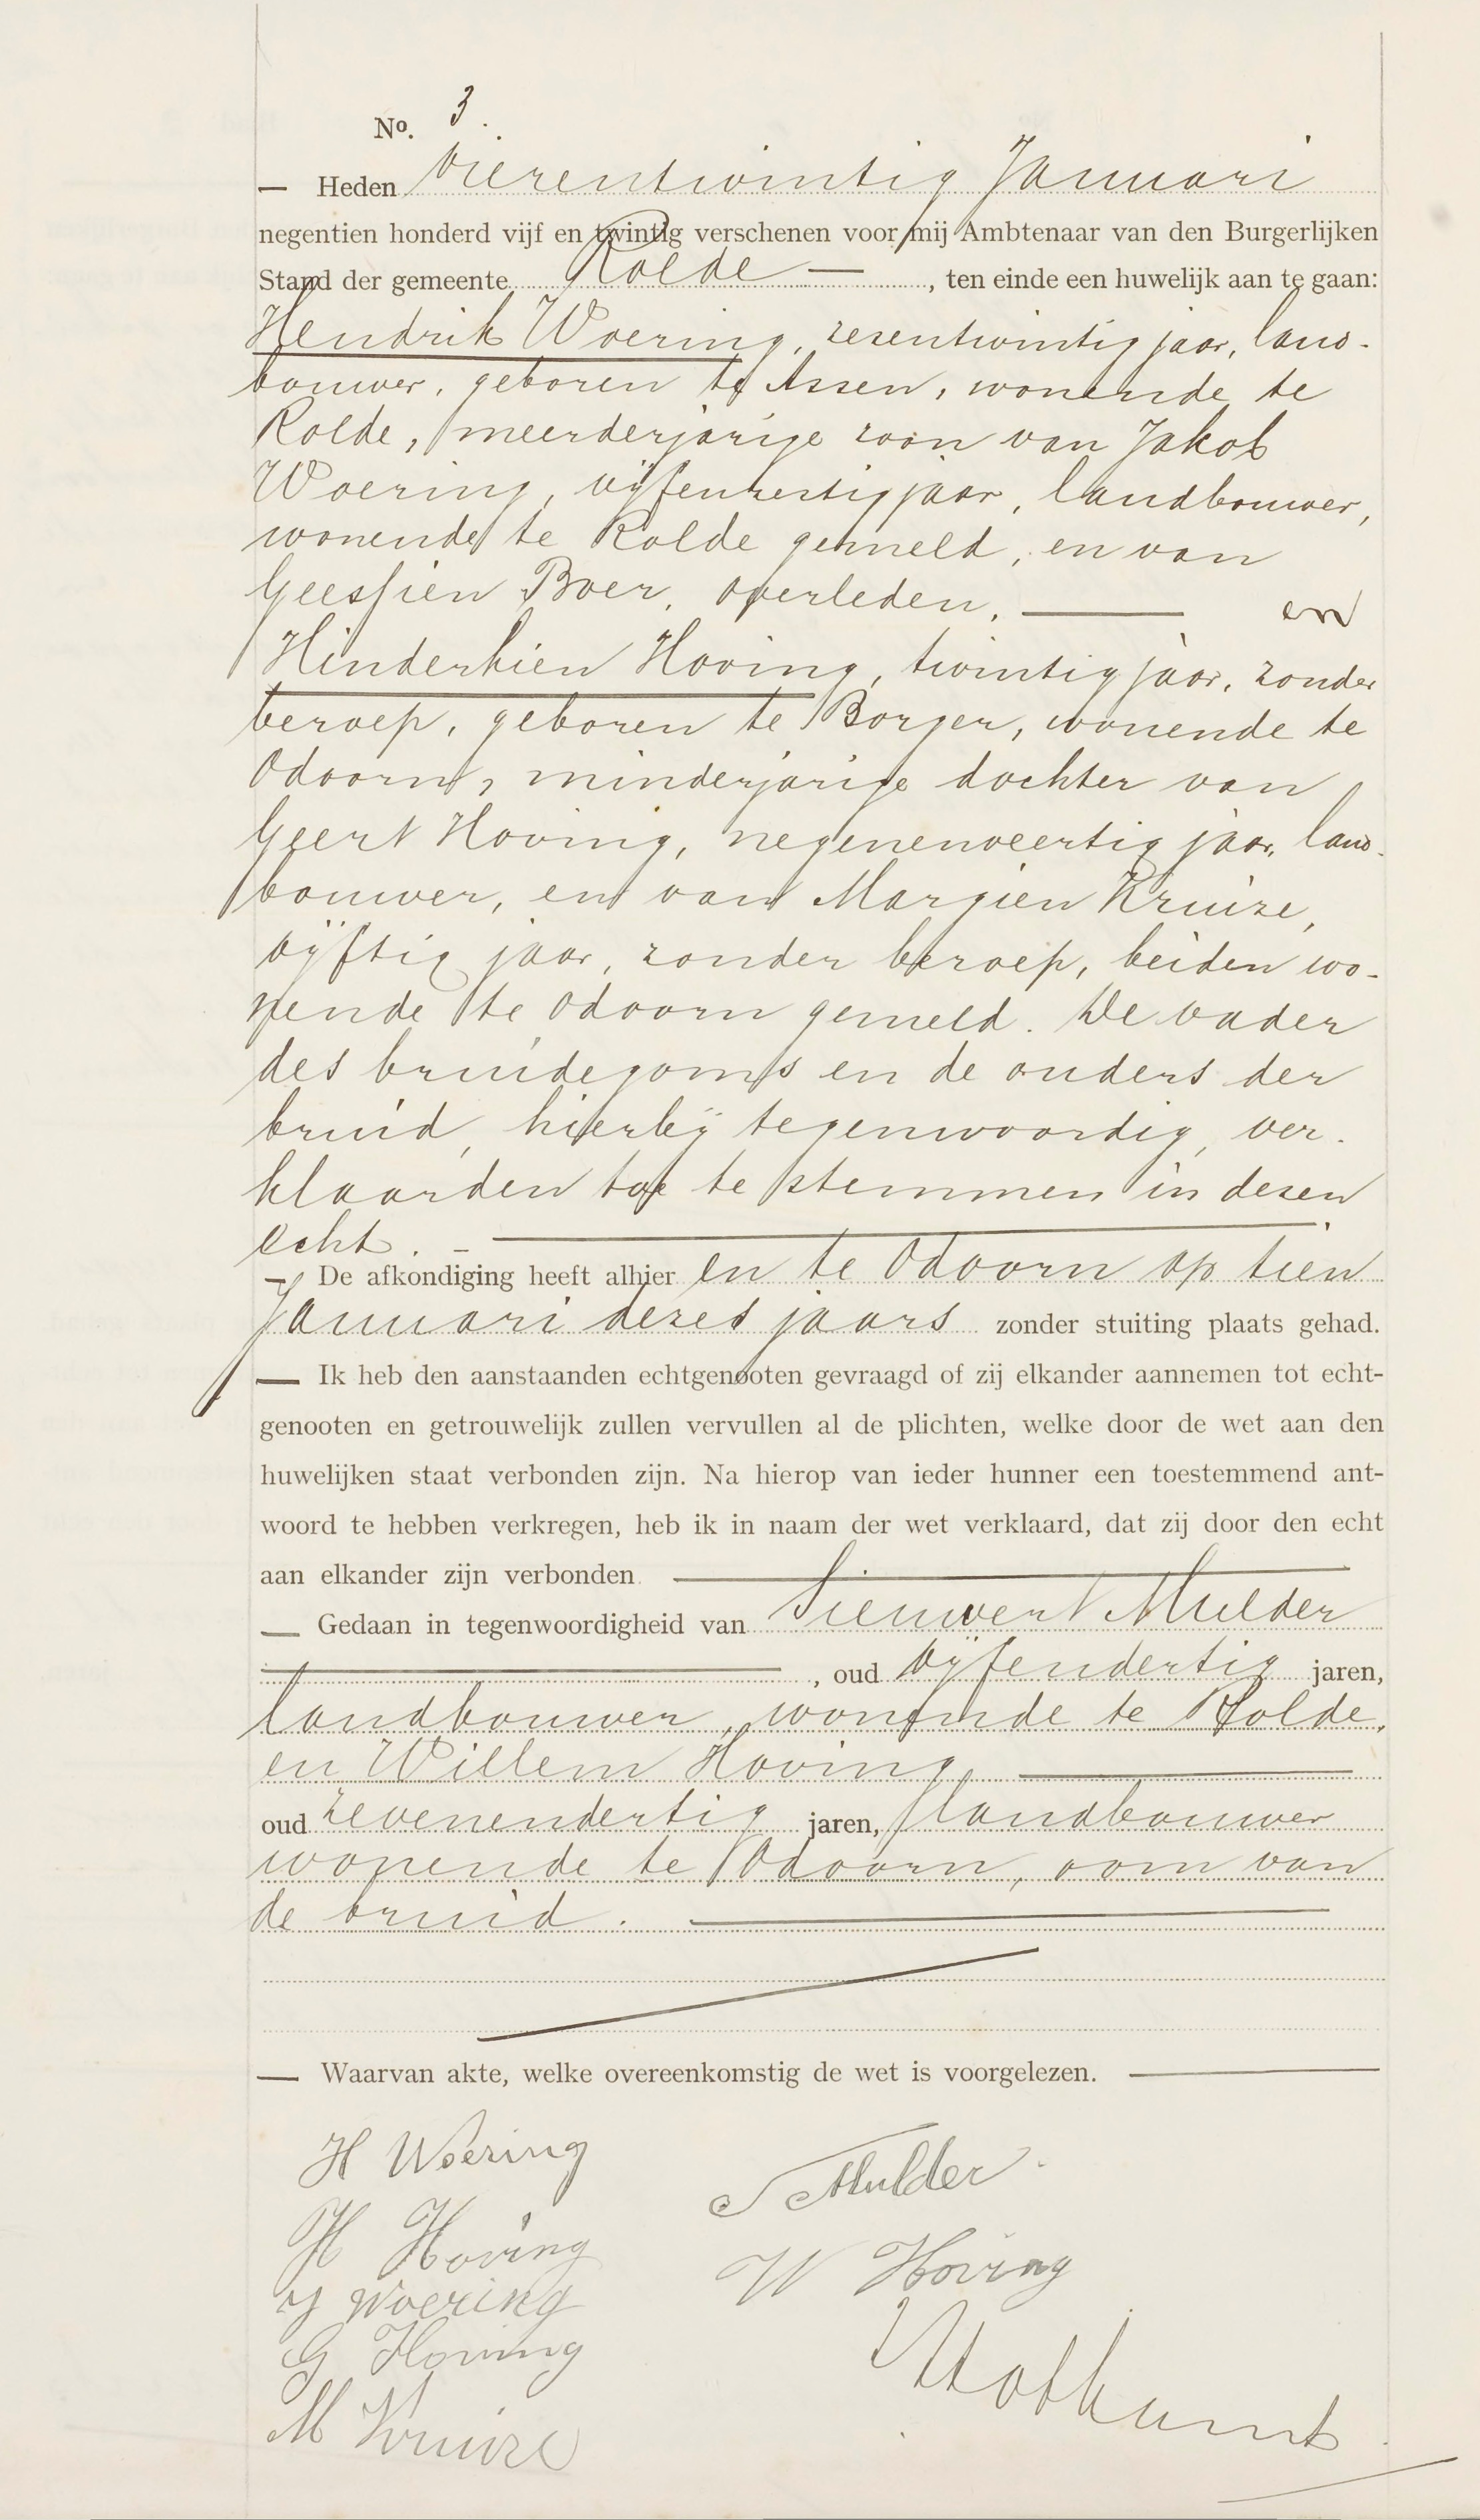 No. 3.
— Heden vierentwintig Januari
negentien honderd vijf en twintig verschenen voor mij Ambtenaar van den Burgerlijken
Stand der gemeente Rolde —, ten einde een huwelijk aan te gaan:
Hendrik Woering, zesentwintig jaar, land-
bouwer, geboren te Assen, wonende te
Rolde, meerderjarige zoon van Jakob
Woering, vijfenzestig jaar, landbouwer,
wonende te Rolde gemeld, en van
Geessien Boer, overleden, — en
Hinderkien Hoving, twintig jaar, zonder
beroep, geboren te Borger, wonende te
Odoorn, minderjarige dochter van
Geert Hoving, negenenveertig jaar, land-
bouwer, en van Margien Kruize,
vijftig jaar, zonder beroep, beiden wo-
nende te Odoorn gemeld. De vader
des bruidegoms en de ouders der
bruid, hierbij tegenwoordig, ver-
klaarden toe te stemmen in dezen
echt. —
— De afkondiging heeft alhier en te Odoorn op tien
Januari dezes jaars zonder stuiting plaats gehad.
— Ik heb den aanstaanden echtgenooten gevraagd of zij elkander aannemen tot echt-
genooten en getrouwelijk zullen vervullen al de plichten, welke door de wet aan den
huwelijken staat verbonden zijn. Na hierop van ieder hunner een toestemmend ant-
woord te hebben verkregen, heb ik in naam der wet verklaard, dat zij door den echt
aan elkander zijn verbonden. —
— Gedaan in tegenwoordigheid van Sieuwert Mulder
—, oud vijfendertig jaren,
landbouwer, wonende te Rolde,
en Willem Hoving, —
oud zevenendertig jaren, landbouwer
wonende te Odoorn, oom van
de bruid. —
— Waarvan akte, welke overeenkomstig de wet is voorgelezen. —
H Woering
S Mulder
H Hoving
W Hoving
J Woering
G Hoving
M Kruize